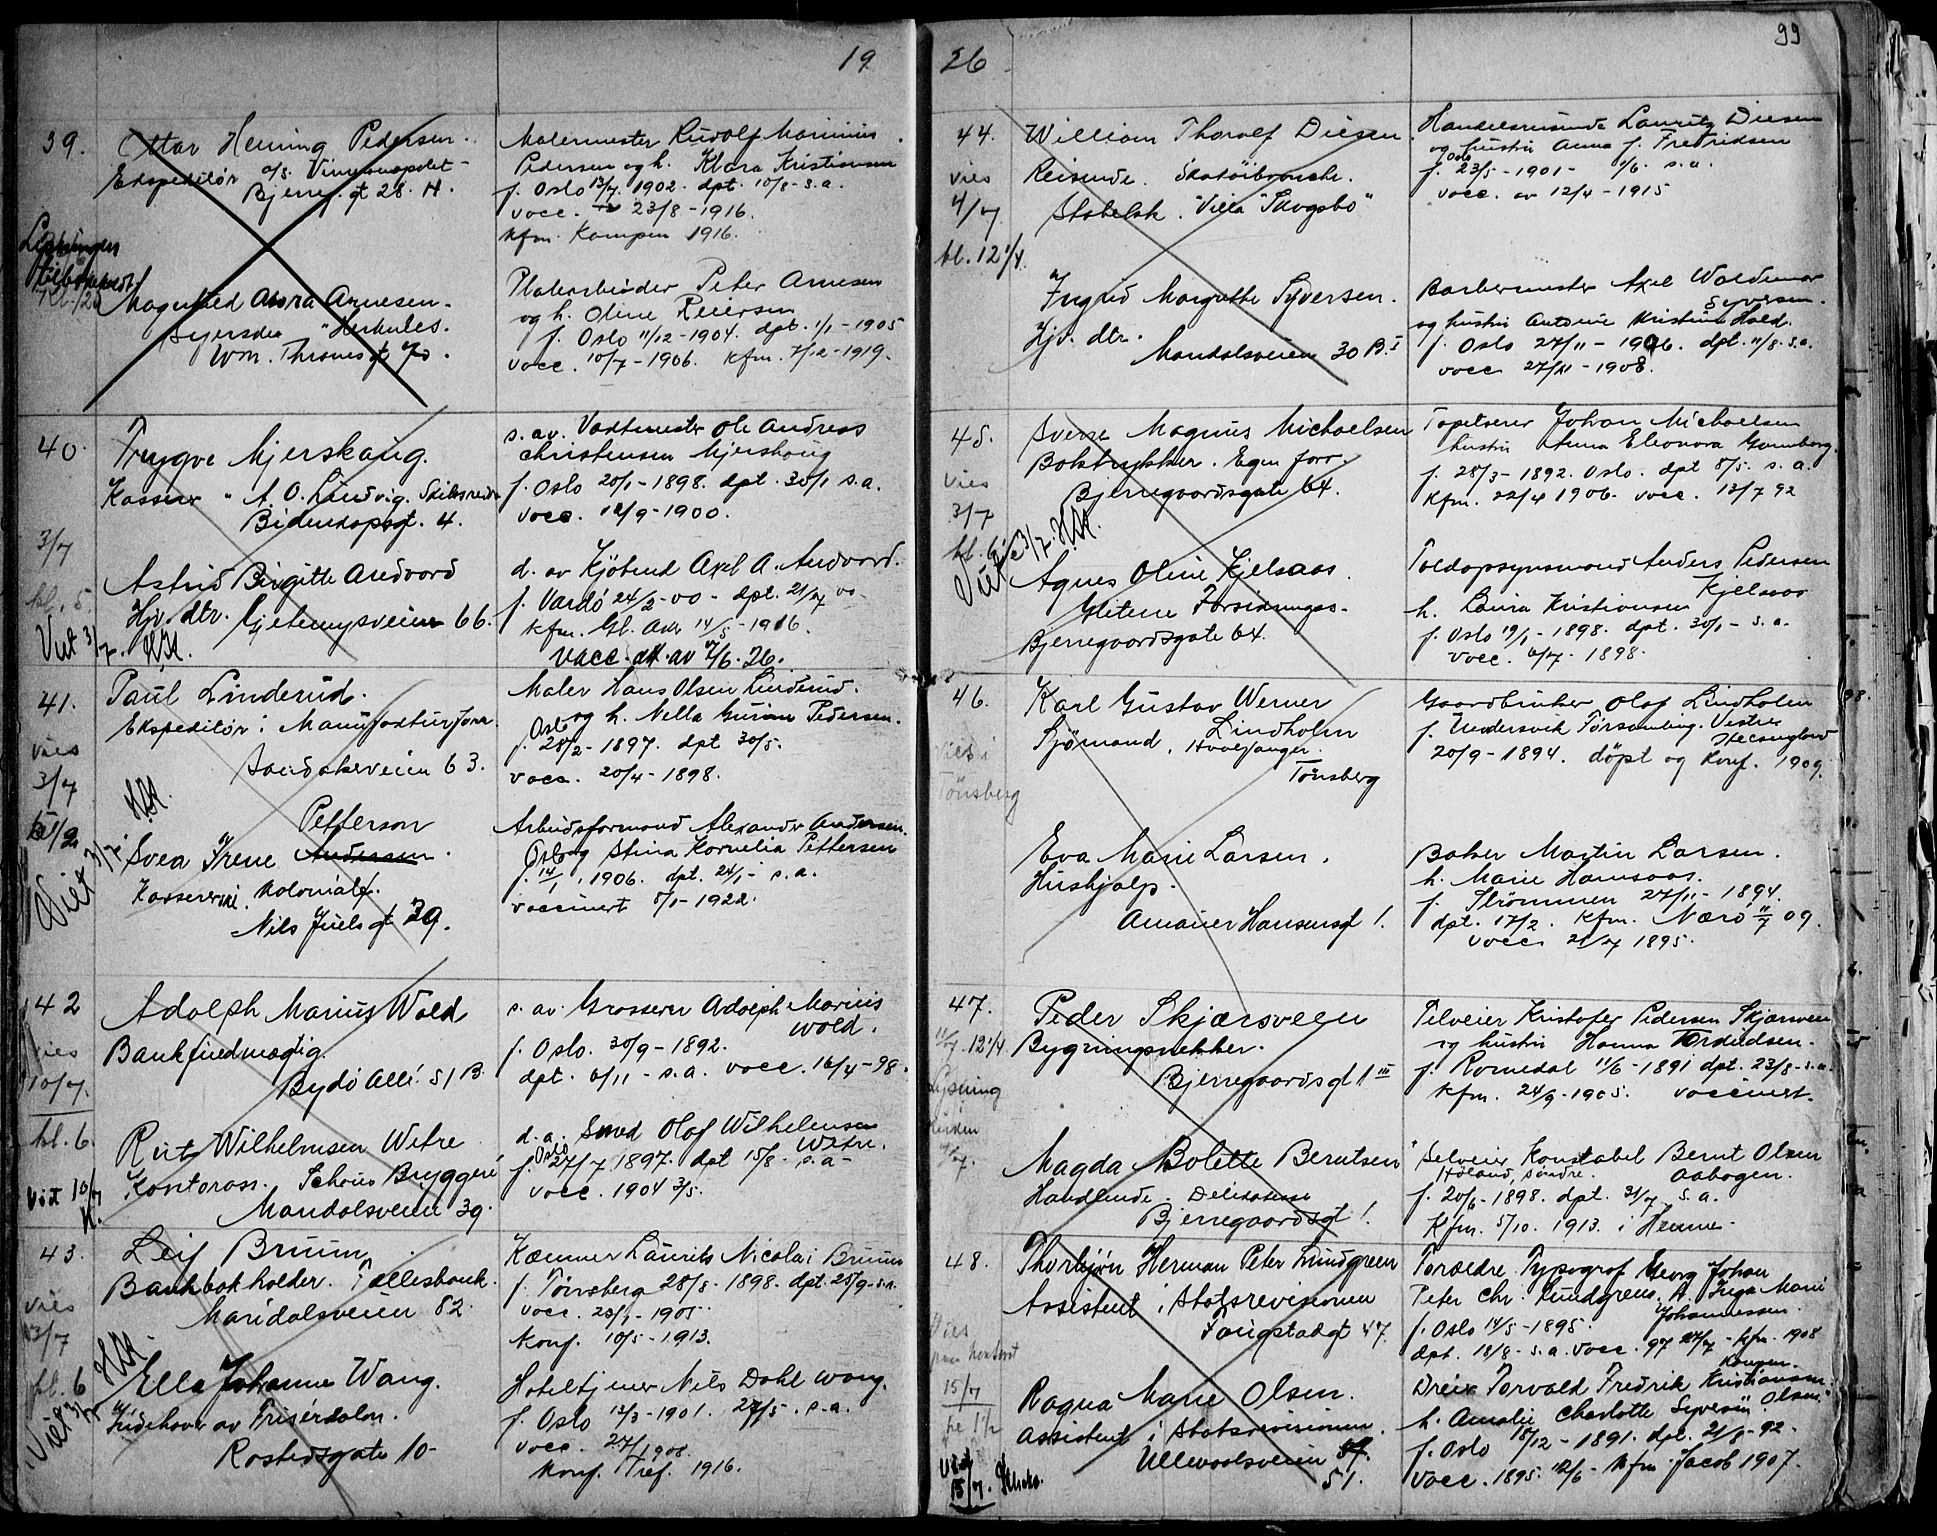 19
39.
Ottar Heming Pedersen.
Ekspeditör a/s. Vinmonopolet
Bjerreg. gt 28. H.
Malermester Rudolf Marinius
Pedersen og h. Klara Kristiansen
f. Oslo 13/7 1902. dpt. 10/8 s.a.
vacc. 23/8-1916.
kfm. Kampen 1916.
Magnhild Alvra Arnesen.
Syerske "Herkules.
Wm. Thranes gt 70.
Platearbeider Peter Arnesen
og h. Oline Reiersen
f. Oslo 11/12-1904. dpt. 1/1-1905
vacc. 10/7-1906. kfm. 7/12-1919.
40.
3/7
kl. 5
Viet 3/7. HH.
Trygve Mjerskaug.
Kasserer A. O. Lindvig. Skibsreder
Bidenkapsgt. 4.
s. av. Vaktmester Ole Andreas
Christensen Mjerskaug
f. Oslo 20/1-1898. dpt. 30/1 s.a.
vacc. 12/9-1900.
Astrid Birgitte Andvord
Hjv. dtr. Gjetemyrsveien 66.
d. av Kjöbmd Axel A. Andvord.
f. Vardö 24/2-00- dpt. 21/7 00-
kfm. Gl. Aker 14/5-1916.
Vacc. att. av 7/6. 26.
41.
vies
3/7
Viet 3/7 HH.
Paul Linderud.
Ekspeditör i Manufakturforr.
Sandakerveien 63.
Maler Hans Olsen Linderud.
og h. Nella Gurine Pedersen.
f. Oslo 28/2-1897. dpt 30/5.
vacc. 20/4-1898.
Petterson
Svea Irene Andersen.
Kassererske. Kolonialf.
Nils Juels gt 39.
Arbeidsformand Alexander Andersen.
og Stina Kornelia Pettersen
f. Oslo 14/1. 1906. dpt. 24/1- s.a.
vaccinert 5/1-1922.
42
vies
10/7.
kl. 6.
Viet 10/7
K.
Adolph Marius Wold
Bankfuldmægtig.
Bygdö Allé. 51 B.
s. av Grosserer Adolph Marius
Wold.
f. Oslo. 30/9-1892.
dpt. 6/11- s.a. vacc. 16/4-98.
Rut Wilhelmsen Witre
Kontorass. Schous Bryggeri
Maridalsveien 39.
d. a. Smed Olaf Wilhelmsen
Witre.
f. Oslo 27/7 1897. dpt 15/8- s.a-
vacc. 1904 3/5.
43.
vies
3/7
kl. 6
Viet 3/7 HH.
Leif Bruun.
Bankbokholder. Fællesbank.
Maridalsveien 82.
Kæmner Laurits Nicolai Bruun
f. Tönsberg 28/8. 1898. dpt. 25/9-s.a.
vacc. 20/1-1905
Konf. 10/5-1913.
Ella Johanne Wang.
Indehaver av Frisérsalon.
Rostedsgate 10-
Hoteltjener Nils Dahl Wang.
f. Oslo 13/3-1901. 27/5. s.a.
vacc. 27/1 1908.
Konf. Tref. 1916.
26
99
44.
vies
4/7
kl. 12 1/4.
William Thoralf Diesen
Reisende. Skotöibransch.
Stabekk. "Villa "Skogsbo"
Handelsreisende Lauritz Diesen
og hustru Anna f. Fredriksen
f. Oslo 23/5-1901- 1/6 s.a.
vacc. av 12/4-1915
Ingrid Margrethe Syversen.
Hjv. dtr.
Maridalsveien 30 B. I
Barbermester Axel Waldemar
Syversen.
og hustru Antonie Kristine Hold.
f. Oslo 27/11-1906. dpt. 11/8. s.a.
vacc. 27/11-1908.
45.
vies
3/7
kl. 6
Viet 3/7. HH.
Sverre Magnus Michaelsen
Boktrykker. Egen forr.
Bjerregaardsgate 64.
Tapetserer Johan Michaelsen
hustru Anna Eleonora Granberg.
f. 28/3-1892. Oslo. dpt 8/5. s.a.
Kfm. 22/4 1906. vacc. 13/7 92
Agnes Oline Kjelsaas.
Glitene Forsikringss.
Bjerregaardsgate 64.
Toldopsynsmand Anders Pedersen
Kjelsaas
h. Laura Kristiansen
f. Oslo 19/1-1898. dpt. 30/1- s.a.
vacc. 6/7. 1898.
46.
vies i
Tönsberg
Karl Gustav Werner
Lindholm
Sjömand. Hvalfanger.
Tönsberg
Gaardbruker Olof Lindholm
f. Undersvik Församling. Vestre
Helsingland
20/9-1894. döpt og konf. 1909.
Eva Marie Larsen.
Hushjælp.
Amaner Hansensgt 1.
Baker Martin Larsen.
h. Marie Hamsaas.
f. Strömmen 27/11-1894.
dpt. 17/2. kfm. Nærö 11/7 09.
vacc. 21/7 1895.
47.
11/7. 12 1/4
Lysning
Peder Skjærsveen
Bygningssnekker.
Bjerregaardsgt 1 III
Selveier Kristofer Pedersen Skjærsveen
og hustru Hanna Tordudsen.
f. Romedal 11/6-1891 dpt. 23/8-s.a.
Kfm. 24/9-1905. vaccinert.
Magda Bolette Berntsen
Handlende. Delikatesse
Bjerregaardsgt 1.
Selveier Konstabel Bernt Olsen
Höland, söndre. Aabogen.
f. 20/6-1898. dpt. 31/7 s.a.
Kfm. 5/10. 1913. i Hemne-
48.
Vies
15/7
Viet
15/7.
Thorbjörn Herman Peter Lundgreen
Assistent i Statsrevisionen
Fougstadgt 47.
Forældre. Typograf Georg Johan
Peter Chr. Lundgreen. h. Inga Marie
Johannessen.
f. Oslo 14/5-1895.
dpt. 18/8- s.a. vacc. 97 27/7- kfm. 1908
Kampen.
Ragna Marie Olsen.
Assistent i Statsrevisionen.
Ullevaalsveien
51.
Dreier Torvald Fredrik Kristiansen
h. Amalie Charlotte Severine Olsen.
f. Oslo 18/12-1891. dpt. 21/8-92.
Vacc. 1895. 12/6- kfm. Jacob 1907.